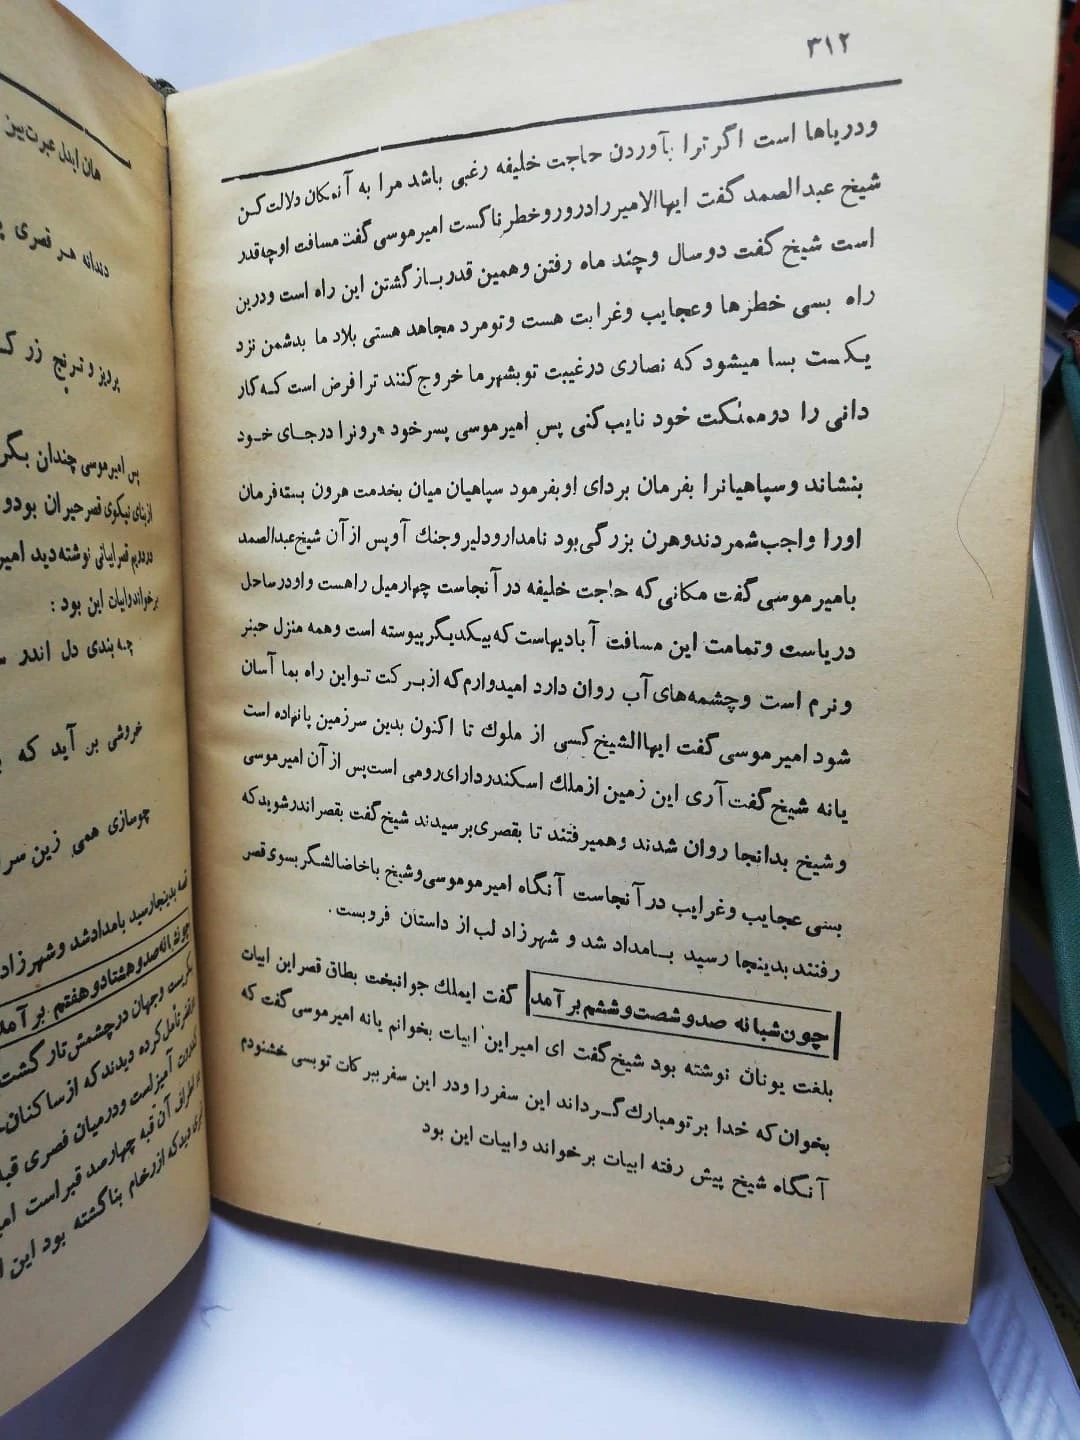 ۳۱۲
ودریاها است اگر ترا بآوردن حاجت خلیفه رغبی باشد مرا به آنمکان دلالت کـن
شیخ عبدالصمد گفت ایهاالامیر راه درور و خطرناکست امیرموسی گفت مسافت او چه قدر
است شیخ گفت دو سال و چند ماه رفتن و همین قدر بـازگشتن این راه است ودرین
راه بسی خطرها وعجایب وغرابت هست وتومرد مجاهد هستی بلاد ما بدشمن نزد
یکـست بسا میشود که نصاری درغیبت توبشهرما خروج کنند ترا فرض است کـه کار
دانی را درمملکت خود نایب کنی پس امیرموسی پسر خود هرونرا درجـای خـود
بنشاند وسپاهیانرا بفرمان بردای او بفرمود سپاهیان میان بخدمت هرون بسته فرمان
اورا واجب شمردند وهرن بزرگی بود نامدار ودلیر وجنك آو پس از آن شیخ عبدالصمد
بامیرموسی گفت مکانی که حاجت خلیفه در آنجاست چهارمیل راهست واودرساحل
دریاست وتمامت این مسافت آبادیهاست که بیکدیگر پیوسته است وهمه منزل حبنر
ونرم است وچشمه‌های آب روان دارد امیدوارم که از بـرکت تـواین راه بما آسان
شود امیرموسی گفت ایهاالشیخ کسی از ملوك تا اکنون بدین سرزمین پانهاده است
یانه شیخ گفت آری این زمین از ملك اسکندر دارای رومی است پس از آن امیرموسی
وشیخ بدانجا روان شدند وهمیرفتند تا بقصری برسیدند شیخ گفت بقصر اندر شوید که
بسی عجایب وغرایب در آنجاست آنگاه امیرموموسی وشیخ باخاضالشگر بسوی قصر
رفتند بدینجا رسید بـامداد شد و شهرزاد لب از داستان فروبست.
چون شبانه صدو شصت و ششم بر آمد گفت ایملك جوانبخت بطاق قصر این ابیات
بلغت یونان نوشته بود شیخ گفت ای امیر این ابیات بخوانم یانه امیرموسی گفت که
بخوان که خدا بر تو مبارك گـرداند این سفر را ودر این سفر ببر کات توبسی خشنودم
آنگاه شیخ پیش رفته ابیات برخواند وابیات این بود
هان ایدل عبرت بین
دندانه هر قصری
پرویز و ترنج زر
پس امیرموسی چندان
از بنای نیکوی قصر حیران بود
نوشته دید
برخواند وابیات این بود :
چه بندی دل اندر
خروشی بر آید که
چوسازی همی زین
قصه بدینجا رسید بامداد شد و شهرزاد
چون شبانه صدو هشتاد و هفتم بر آمد
بگریست وجهان درچشمش تار گشت
تأمل کرده دیدند که از ساکنان
آمیزاست ودرمیان قصری قبه
اطراف آن قبه چهارصد قبر است
دید که از رخام بنا گشته بود این